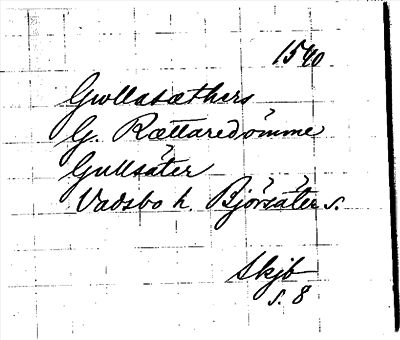 1540
Gwllasæthers
G. Rættaredömme
Gullsäter
Vadsbo h. Björsäter s.
Skjb
s. 8